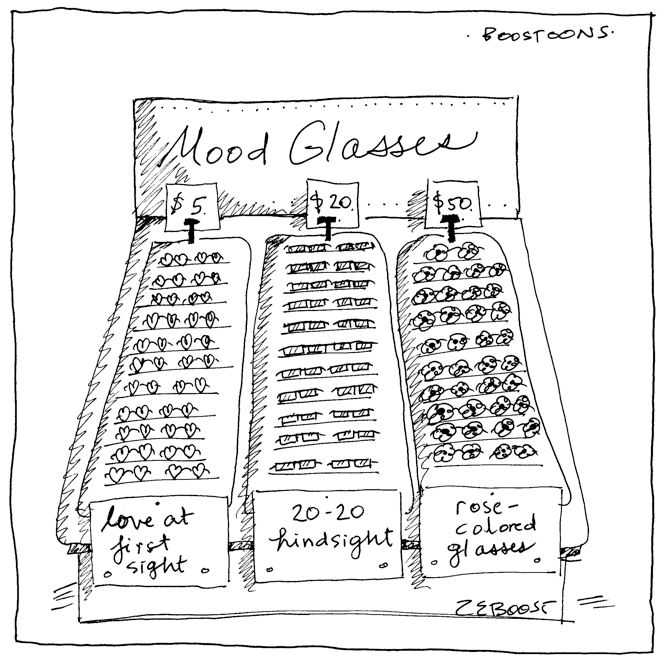 · BOOSTOONS·
Mood Glasses
$5
$20
$50
love at
first
sight
20-20
hindsight
rose-
colored
glasses
ZEBOOST